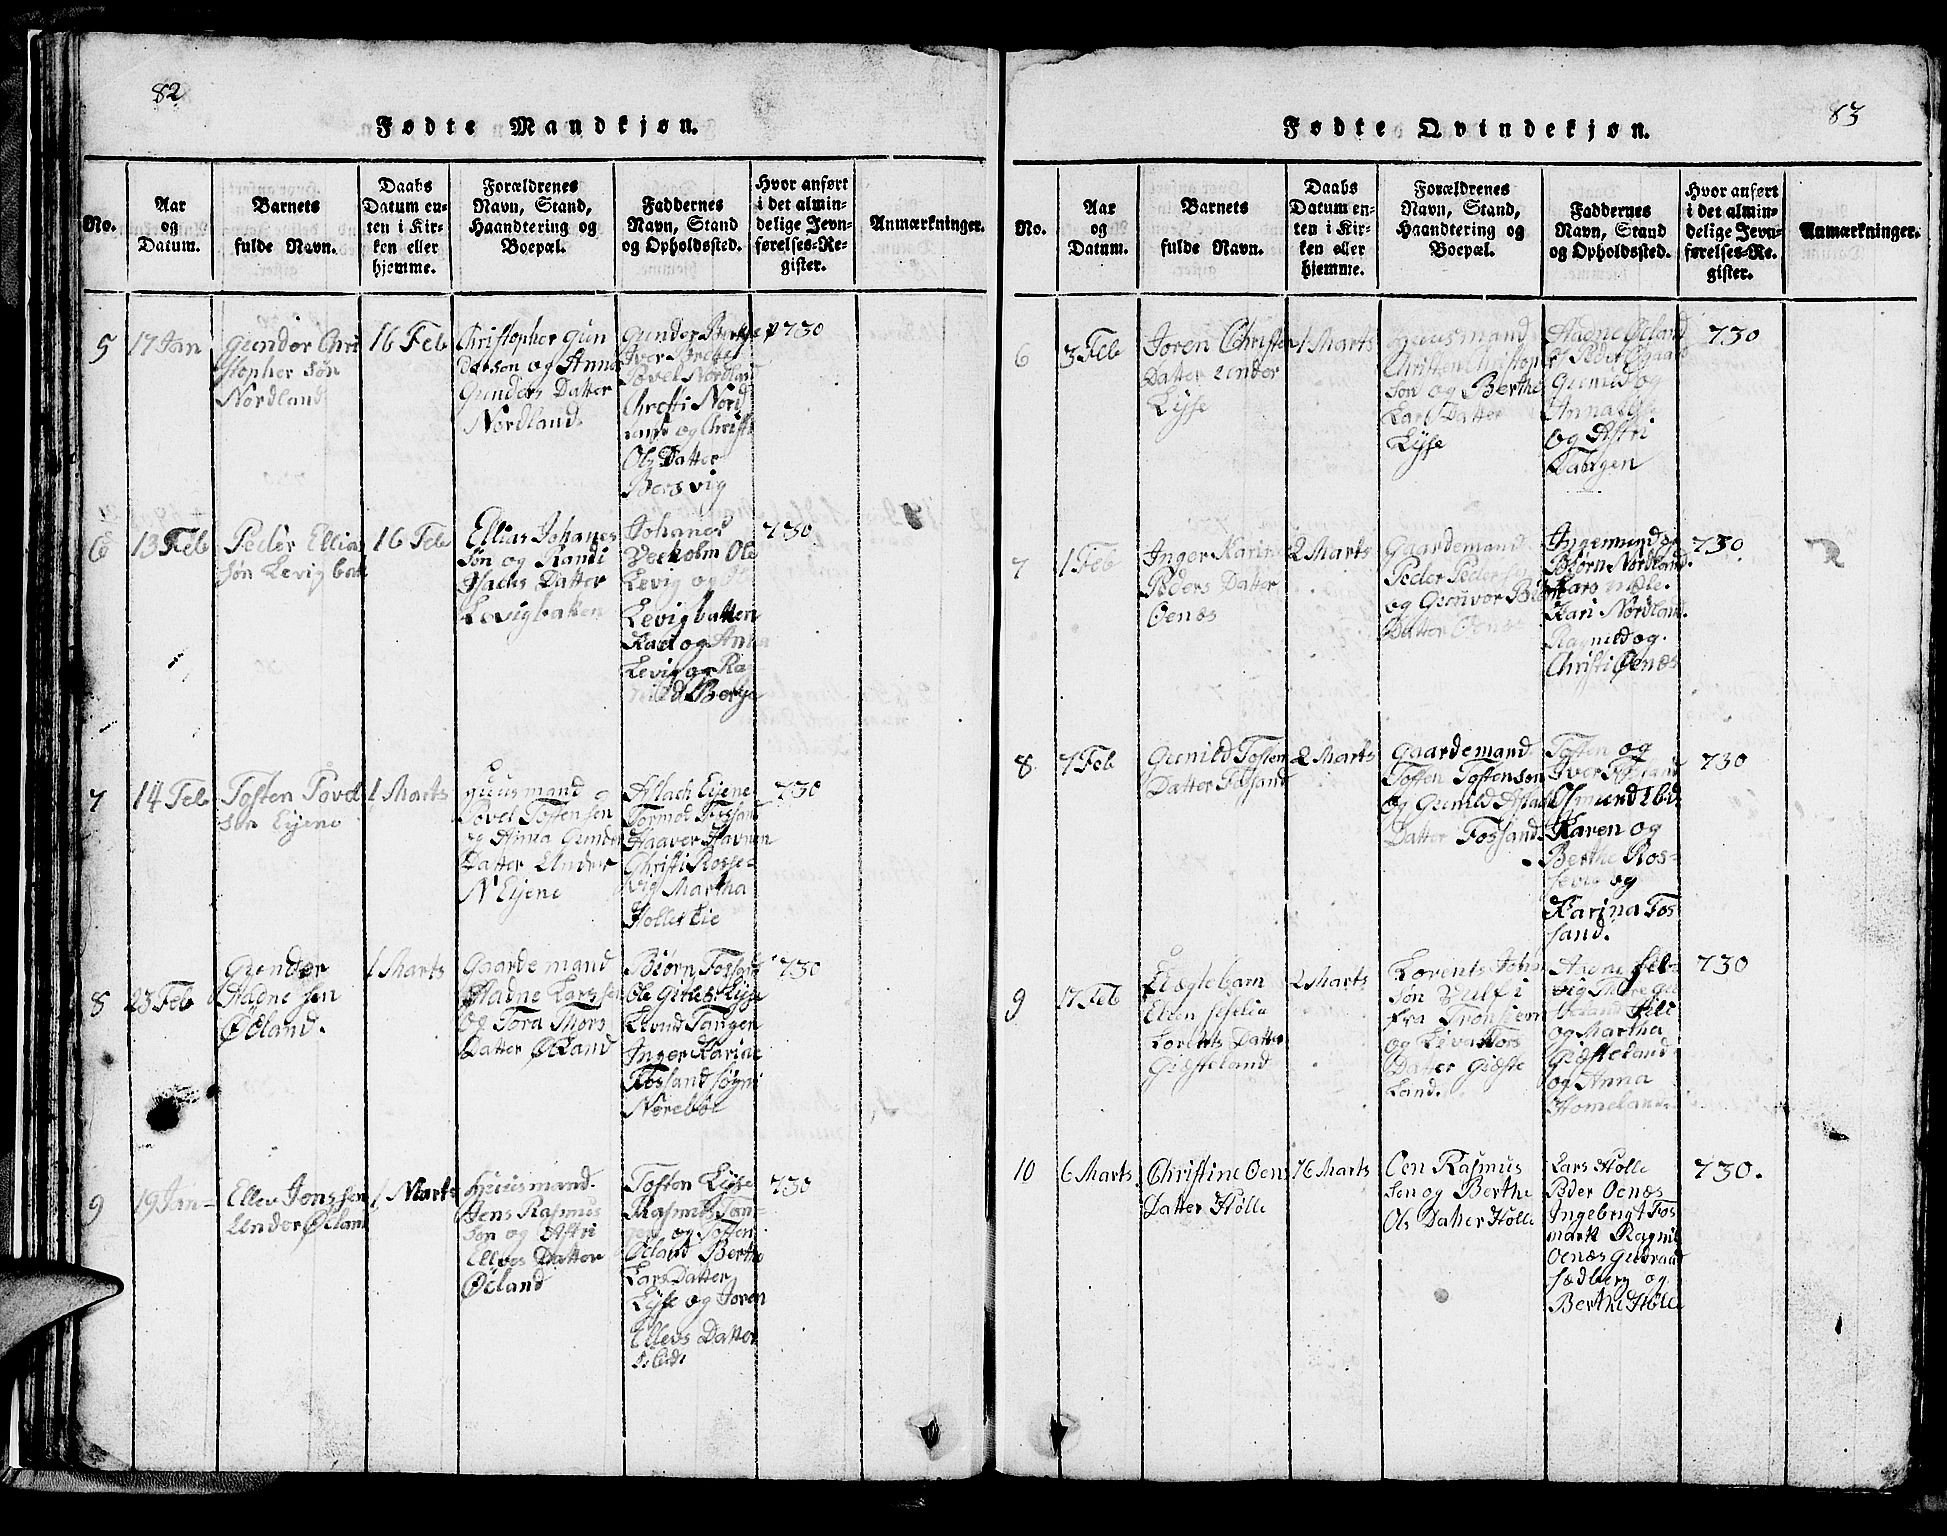 82
Fødte Mandkjøn.
No.
Aar
og
Datum.
Barnets
fulde Navn.
Daabs
Datum en-
ten i Kir-
ken eller
hjemme.
Forældrenes
Navn, Stand,
Haandtering og
Boepæl.
Faddernes
Navn, Stand
og Opholdssted.
Hvor anført
i det almin-
delige Jevn-
førelses-Re-
gister.
Anmærkninger.
5
17 Jan
Gunder Chri
stopher søn
Nordland
16 Feb
Christopher Gun
dersen og Anna
Gunders Datter
Nordland.
Gunder
Iver
Povel Nordland
Christi Nord
land og Christi
Ols Datter
Bersvig
730
6
13 Feb
Peder Ellias
søn Levigbak
16 Feb
Ellias Johanes
søn og Randi
Datter
Levigbakken
Johanes
Veeholm Ole
Levig og
Levigbakken
Kari og Anna
Levig og Ra
nild Berge
730
7
14 Feb
Tosten Povel
søn Eijene
1 Marts
Huusmand
Povel Tostensøn
og Anna Gunder
Datter Under
Eijene
Aslach Eijene
Tormod Fossan
Haaver Havnen
Christi Rosse
vig Martha
Holleslie
730
8
23 Feb
Gunder
Hadne søn
Øeland.
1 Marts
Gaardemand
Hadne Larssen
og Tora Thors
Datter Øeland
Biørn Fossan
Ole Gitlesr Lyse
Eivind Tangen
Inger Karine
Fossand
Nørebøe
730
9
19 Jan
Ellev Jenssen
Under Øeland
1 Marts
Huusmand.
Jens Rasmus
søn og Astri
Ellevs Datter
Øeland
Tosten Lyse
Rasmus Tan-
gen og Tosten
Øeland Berthe
Lars Datter
Lyse og Joren
Ellevs Datter
ibid.
730
83
Fødte Qvindekjøn.
No.
Aar
og
Datum.
Barnets
fulde Navn.
Daabs
Datum en-
ten i Kir-
ken eller
hjemme.
Forældrenes
Navn, Stand,
Haandtering og
Boepæl.
Faddernes
Navn, Stand
og Opholdssted.
Hvor anført
i det almin-
delige Jevn-
førelses-Re-
gister.
Anmærkninger.
6
3 Feb
Joren Christen
Datter under
Lysse
1 Marts
Huusmand
Christen Christop
søn og Berthe
Lars Datter
Lysse
Hadne Øeland
Peder
Gunild og
Anna Lyse
og Astri
Tangen
730
7
1 Feb
Inger Karine
Peders Datter
Oenæs
2 Marts
Gaardemand
Peder Pedersen
og Gunvor Biørn
Datter Oenæs
Ingemund og
Biørn Nordland.
Lars Ole.
Kari Nordland.
Ragnild og
Christi Oenæs
730.
8
7 Feb
Gunild Tosten
Datter Fossand
2 Marts
Gaardemand
Tosten Tostenson
og Gunild Aslak
Datter Fossand.
Tosten og
Iver Fossand
Osmund Ibd.
Karen og
Berthe Ros-
sevig og
Karina Fos
sand.
730
9
17 Feb
Uægtebarn
Elen
Lorents Datter
Giæsteland
2 Marts
Lorents Joha
søn Wulf i
fra Tronhiem
og Liva Tors
Datter Giæste
Land.
vig
og Martha
Giæsteland
og Anna
Homeland
730
10
6 Marts
Christine Oens
Datter Holle
16 Marts
Oen Rasmus
søn og Berthe
Ols Datter Holle
Lars Holle
Peder Oenæs
Ingebrigt Fos
mark Ragnil
Oenæs Gudraad
sædberg og
Berthe Holle
730.